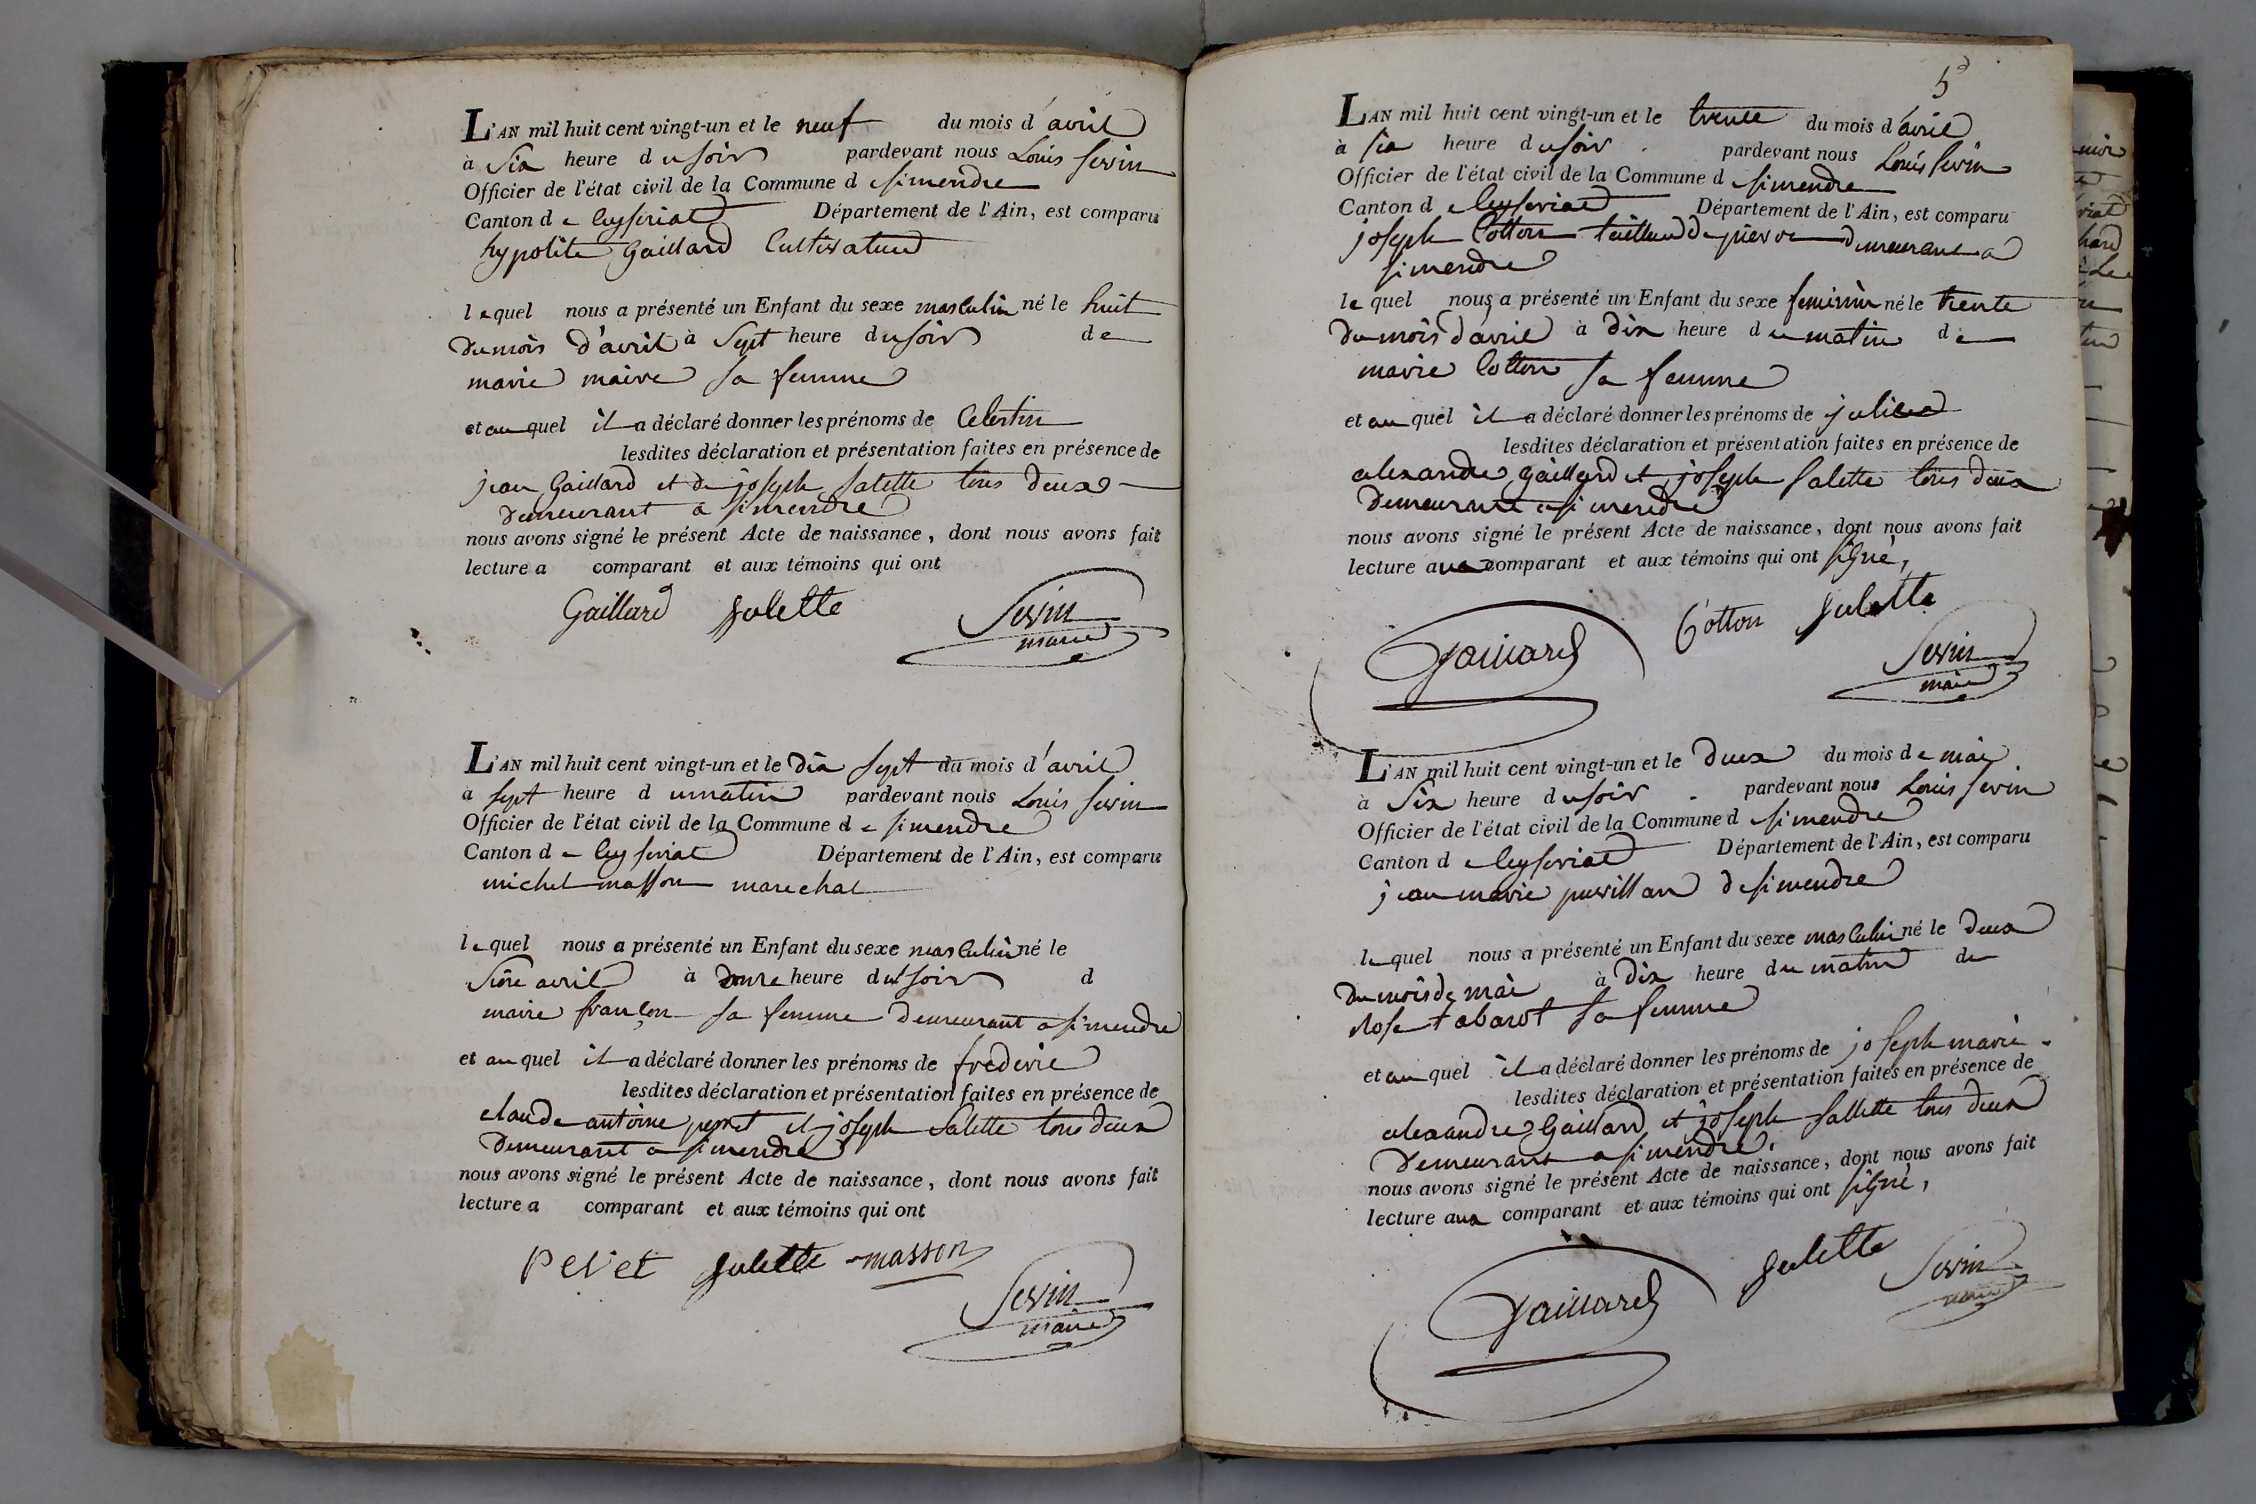 L'AN mil huit cent vingt-un et le neuf du mois d'avril
à Six heure du soir pardevant nous Louis Servin
Officier de l'état civil de la Commune d simendre
Canton de Ceyseriat Département de l'Ain, est comparu
hypolite Gaillard Cultivateur
lequel nous a présenté un Enfant du sexe masculin né le huit
du mois d'avril à Sept heure du soir de
marie maire sa femme
et au quel il a déclaré donner les prénoms de Celestin
lesdites déclaration et présentation faites en présence de
jean Gaillard et de joseph Salette tous deux
demeurant a simendre
nous avons signé le présent Acte de naissance, dont nous avons fait
lecture a comparant et aux témoins qui ont
Gaillard Salette Servin
maire
L'AN mil huit cent vingt-un et le dix sept du mois d'avril
a sept heure du matin pardevant nous Louis Servin
Officier de l'état civil de la Commune de simendre
Canton de Ceyseriat Département de l'Ain, est comparu
michel masson marechal
lequel nous a présenté un Enfant du sexe masculin né le
avril à onze heure du soir d
marie françon sa femme demeurant a simendre
et au quel il a déclaré donner les prénoms de frederic
lesdites déclaration et présentation faites en présence de
claude antoine perret et joseph Salette tous deux
demeurant a simendre
nous avons signé le présent Acte de naissance, dont nous avons fait
lecture a comparant et aux témoins qui ont
Peret Salette masson
Servin
maire
5
L'AN mil huit cent vingt-un et le trente du mois d'avril
à six heure du soir pardevant nous Louis Servin
Officier de l'état civil de la Commune d simendre
Canton de Ceyseriat Département de l'Ain, est comparu
joseph Cotton tailleur de pierre demeurant a
simendre
lequel nous a présenté un Enfant du sexe feminin né le trente
du mois d'avril à dix heure du matin de
marie Cotton sa femme
et au quel il a déclaré donner les prénoms de julie
lesdites déclaration et présentation faites en présence de
alexandre gaillard et joseph Salette tous deux
demeurant a simendre
nous avons signé le présent Acte de naissance, dont nous avons fait
lecture aux comparant et aux témoins qui ont signé,
Gaillard Cotton Salette
Servin
maire
L'AN mil huit cent vingt-un et le deux du mois de mai
à Six heure du soir pardevant nous Louis Servin
Officier de l'état civil de la Commune d simendre
Canton de Ceyseriat Département de l'Ain, est comparu
jean marie de simendre
lequel nous a présenté un Enfant du sexe masculin né le deux
du mois de mai à dix heure du matin de
Rose tabarot sa femme
et au quel il a déclaré donner les prénoms de joseph marie
lesdites déclaration et présentation faites en présence de
alexandre Gaillard et joseph Sallette tous deux
demeurant a simendre.
nous avons signé le présent Acte de naissance, dont nous avons fait
lecture aux comparant et aux témoins qui ont signé,
Gaillard Salette Servin
maire